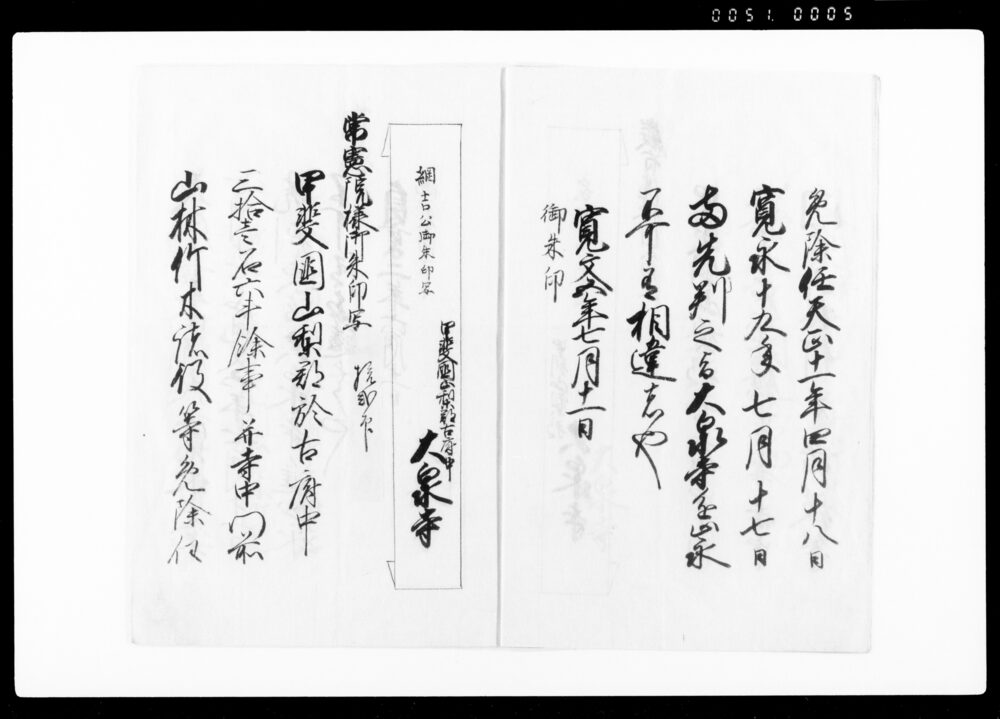 0051. 0005
免除任天正十一年四月十八日
寛永十九年七月十七日
両先判之旨大泉寺全山永
不可有相違者也
寛文五年七月十一日
御朱印
綱吉公御朱印写
甲斐国山梨郡古府中
大泉寺
常憲院様御朱印写
甲斐国山梨郡於古府中
三拾壱石六斗餘事并寺中門前
山林竹木諸役等免除任